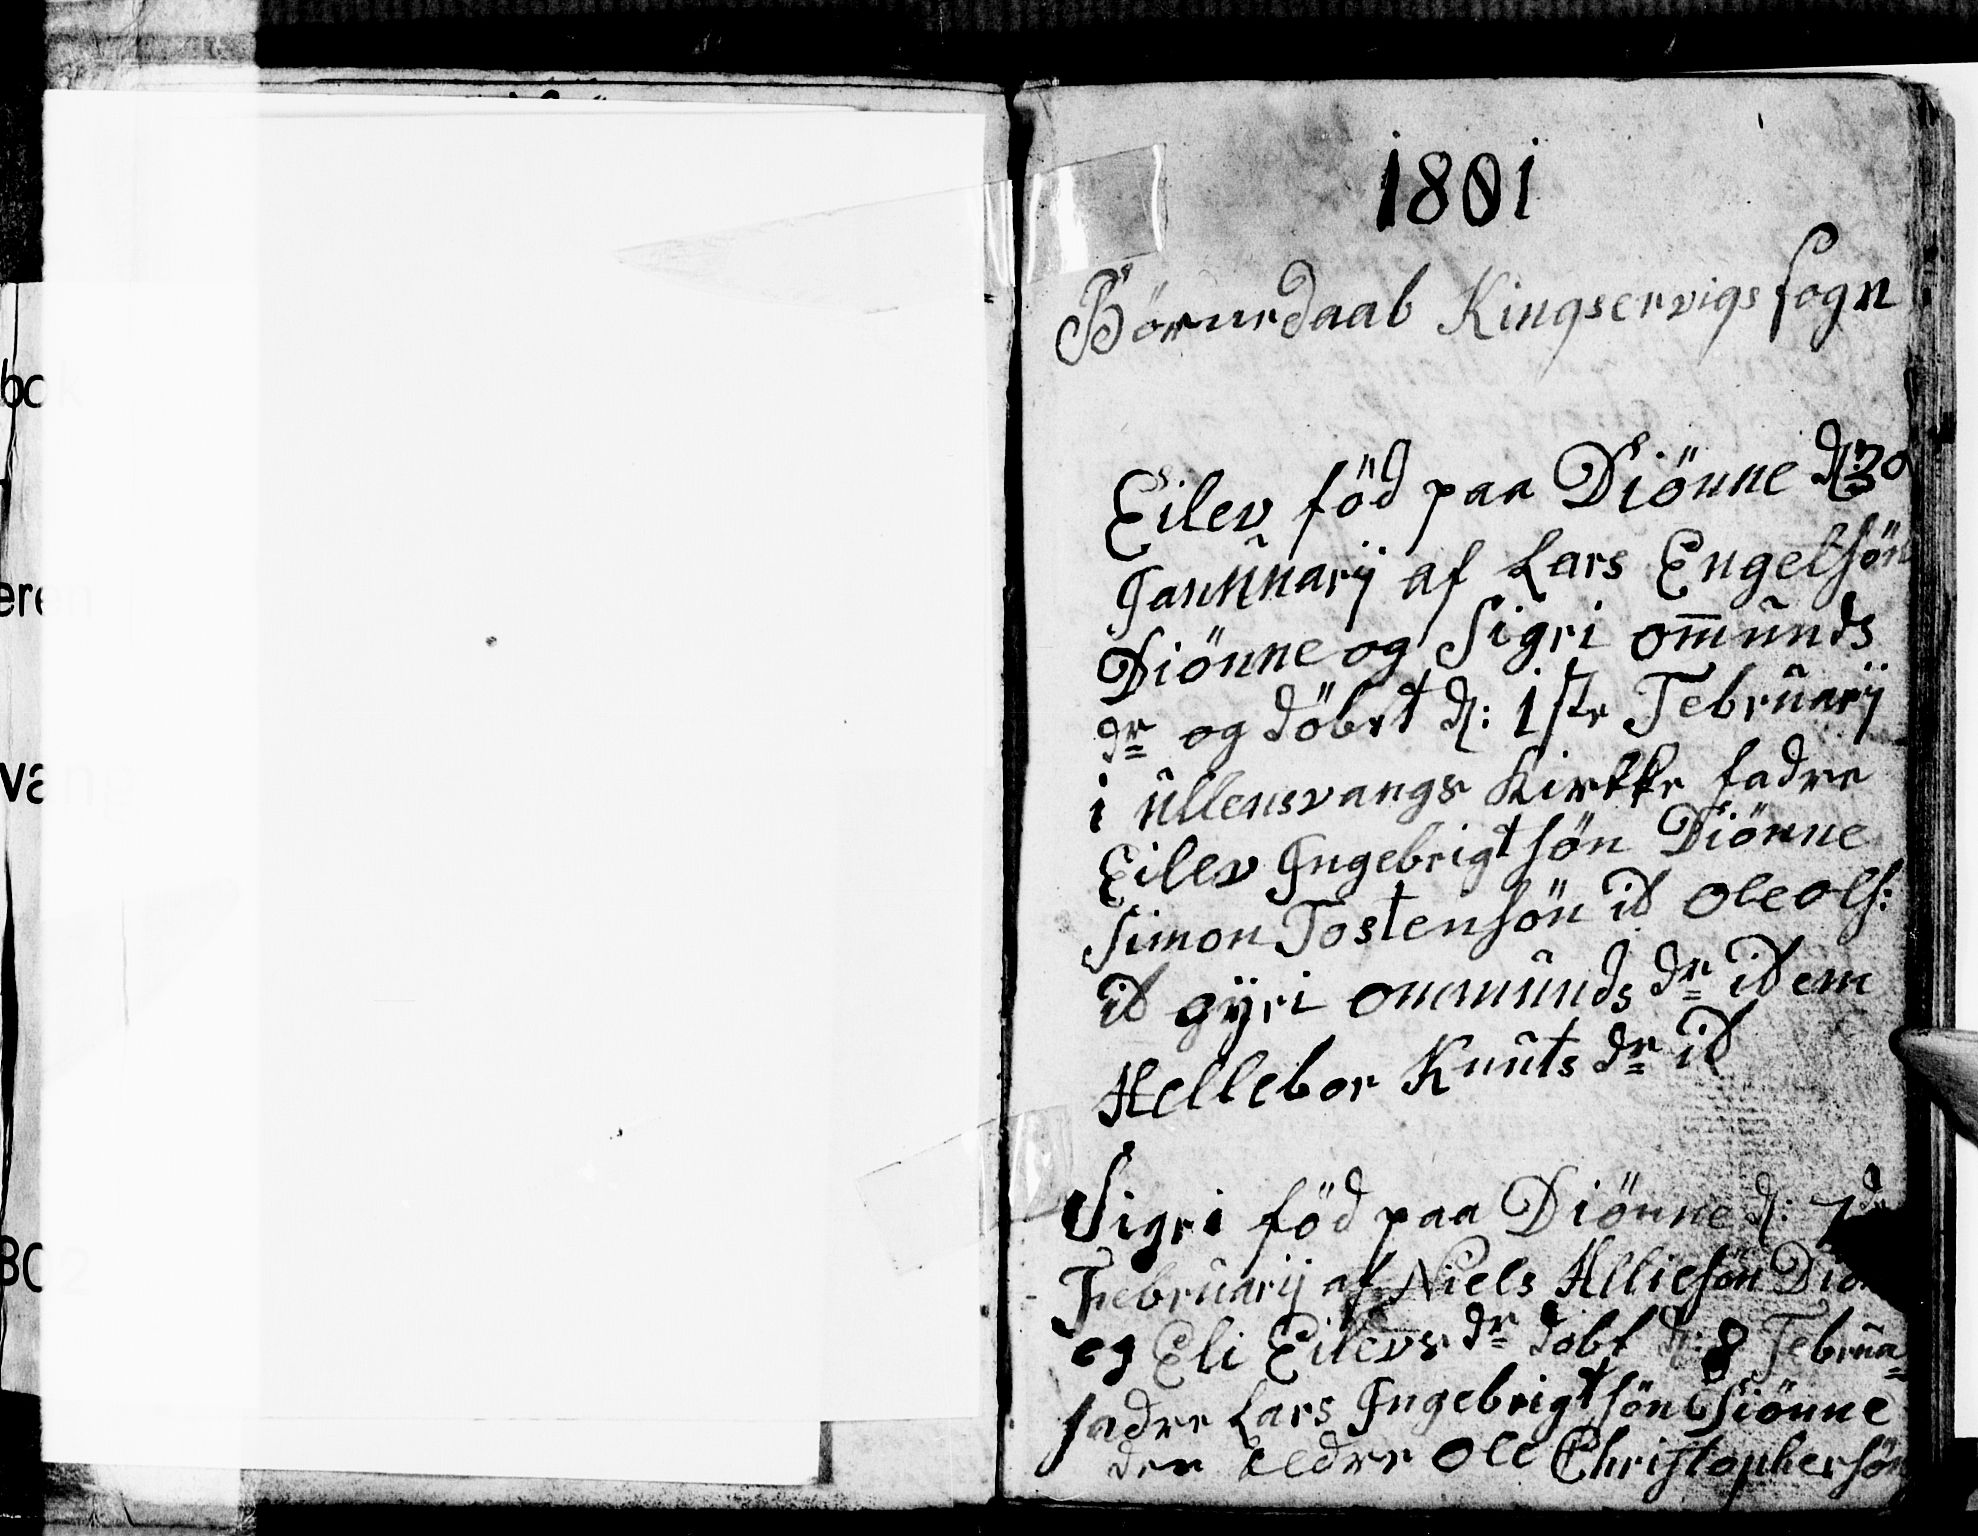 1801
Börnedaab Kingservigs sogn
Eilev föd paa Diönne d: 30
Januarij af Lars Engelsön
Diönne og Sigri om̅unds
dr og döbt d: 1ste Februarij
i Ullensvangs Kirkke fadre
Eilev Ingebrigtsön Diönne
Simon Tostensön id Ole Ols:
id gyri Ommunds dr idem
Hellebor Knuts dr id
Sigri föd paa Diönne d: 7de
Februarij af Niels Allielsön
og Eli Eilevs dr döbt d: 8 Februa
fadre Lars Ingebrigtsön Diönne
den eldre Ole Christophersön
bo
ere
va
80